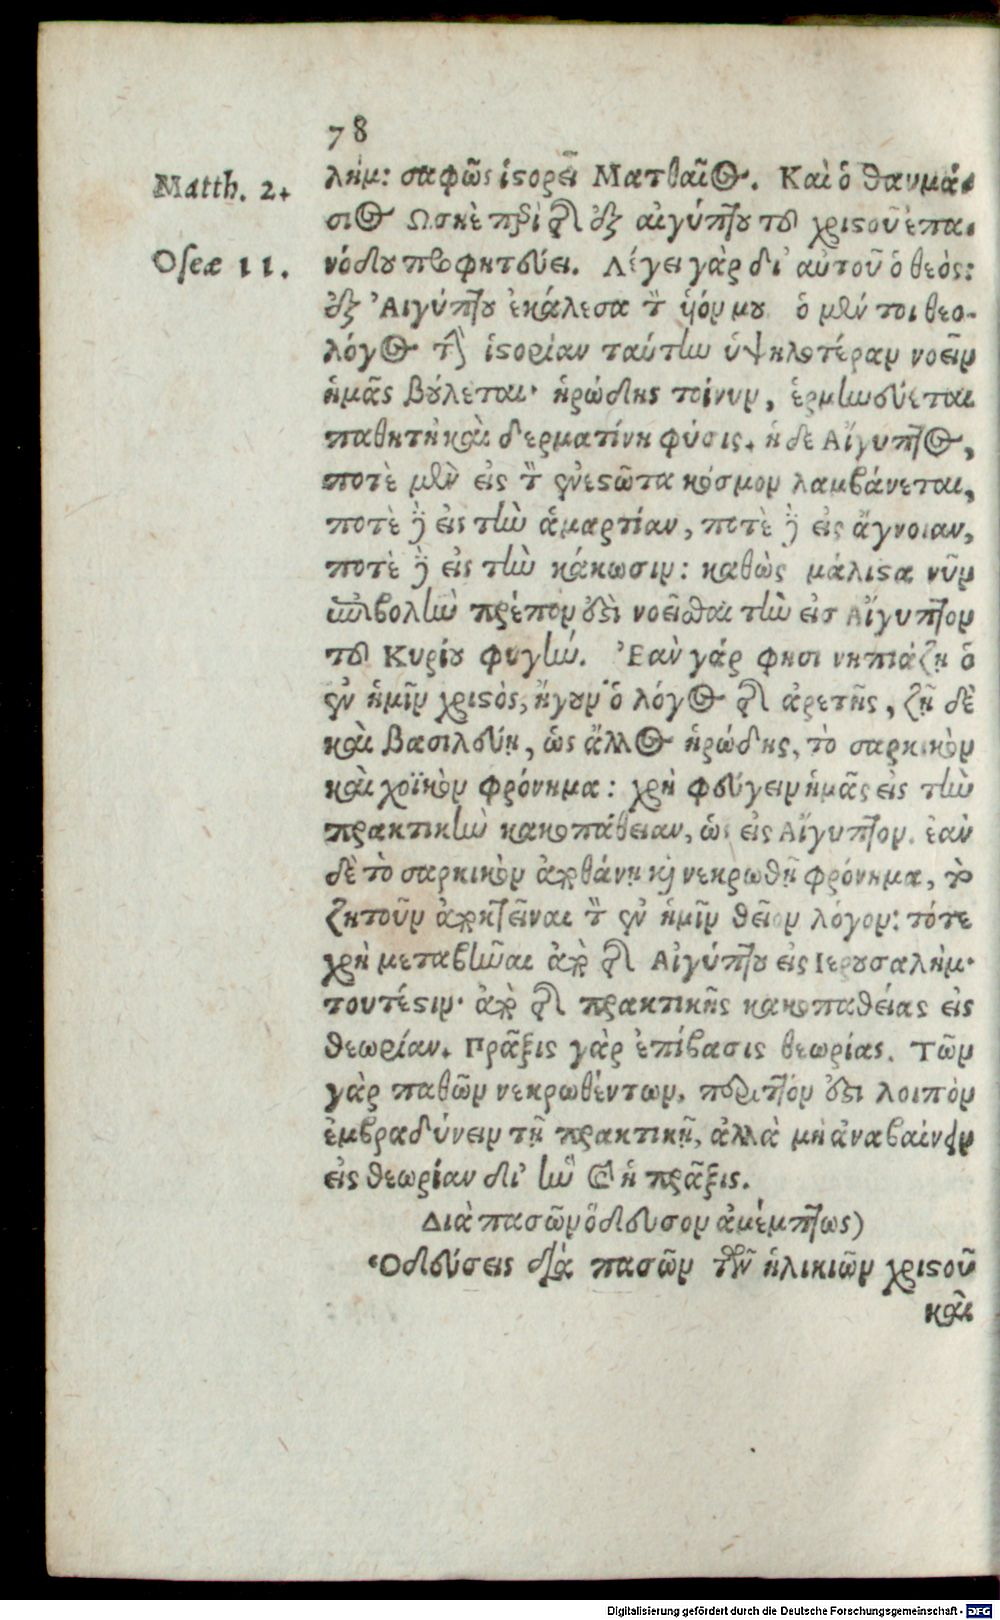 78
Matth. 2.
λήμ: σαφῶς ἱστορεῖ Ματθαῖος. Καὶ ὁ θαυμά-
σιος Ωσηὲ περὶ τῆς ἐξ αἰγύπτου τοῦ χριστοῦ ἐπα-
Oseæ 11.
νόδου προφητεύει. Λέγει γὰρ δι' αὐτοῦ ὁ θεός:
ἐξ Ἀιγύπτου ἐκάλεσα τὸν ὑιόν μου ὁ μέν τοι θεο-
λόγος τὴν ἱστορίαν ταύτην ὑψηλοτέραν νοεῖν
ἡμᾶς βούλεται· ἡρώδης τοίνυν, ἑρμηνεύεται
παθητὴ καὶ δερματίνη φύσις. ἡ δε Αἴγυπτος,
ποτὲ μὲν εἰς τὸν ἐνεστῶτα κόσμον λαμβάνεται,
ποτὲ δὲ εἰς τὴν ἁμαρτίαν, ποτὲ δὲ εἰς ἄγνοιαν,
ποτὲ δὲ εἰς τὴν κάκωσιν: καθὼς μάλιστα νῦν
ἐπιβολὴν πρέπον ἐστὶ νοεῖσθαι τὴν εἰσ Αἴγυπτον
τοῦ Κυρίου φυγήν. Ἐαν γάρ φησι νηπιάζῃ ὁ
ἐν ἡμῖν χριστὸς, ἤγουν ὁ λόγος τῆς ἀρετῆς, ζῇ δὲ
καὶ βασιλεύῃ, ὡς ἄλλος ἡρώδης, τὸ σαρκικὸν
καὶ χοϊκὸν φρόνημα: χρὴ φεύγειν ἡμᾶς εἰς τὴν
πρακτικὴν κακοπάθειαν, ὡς εἰς Αἴγυπτον. ἐὰν
δὲ τὸ σαρκικὸν ἀποθάνῃ καὶ νεκρωθῇ φρόνημα, τὸ
ζητοῦν ἀποκτεῖναι τὸν ἐν ἡμῖν θεῖον λόγον: τότε
χρὴ μεταβῆναι ἀπὸ τῆς Αἰγύπτου εἰς Ιερουσαλὴμ·
τουτέστιν· ἀπὸ τῆς πρακτικῆς κακοπαθείας εἰς
θεωρίαν. Πρᾶξις γὰρ ἐπίβασις θεωρίας. Τῶν
γὰρ παθῶν νεκρωθέντων, περιττόν ἐστι λοιπὸν
ἐμβραδύνειν τῇ πρακτικῇ, ἀλλὰ μὴ ἀναβαίνειν
εἰς θεωρίαν δι' ἣν καὶ ἡ πρᾶξις.
Διὰ πασῶν ὅδευσον ἀμέμπτως)
Ὁδεύσεις διὰ πασῶν τῶν ἡλικιῶν χριστοῦ
καὶ
Digitalisierung gefördert durch die Deutsche Forschungsgemeinschaft - DFG